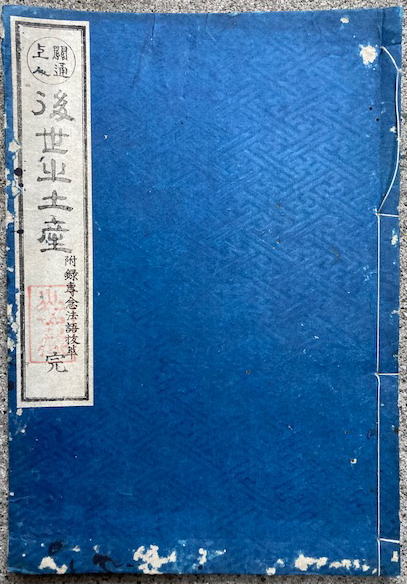 關通
上人
後世之土産
附録專念法語抜萃
完